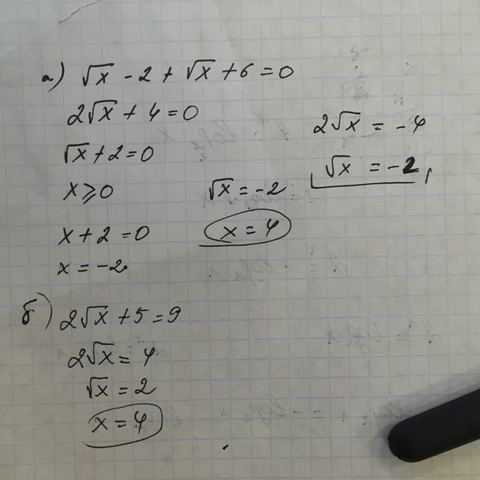 а) √x - 2 + √x + 6 = 0
2√x + 4 = 0
√x + 2 = 0
x ≥ 0
x + 2 = 0
x = -2
√x = -2
x = 4
2√x = -4
√x = -2
б) 2√x + 5 = 9
2√x = 4
√x = 2
x = 4